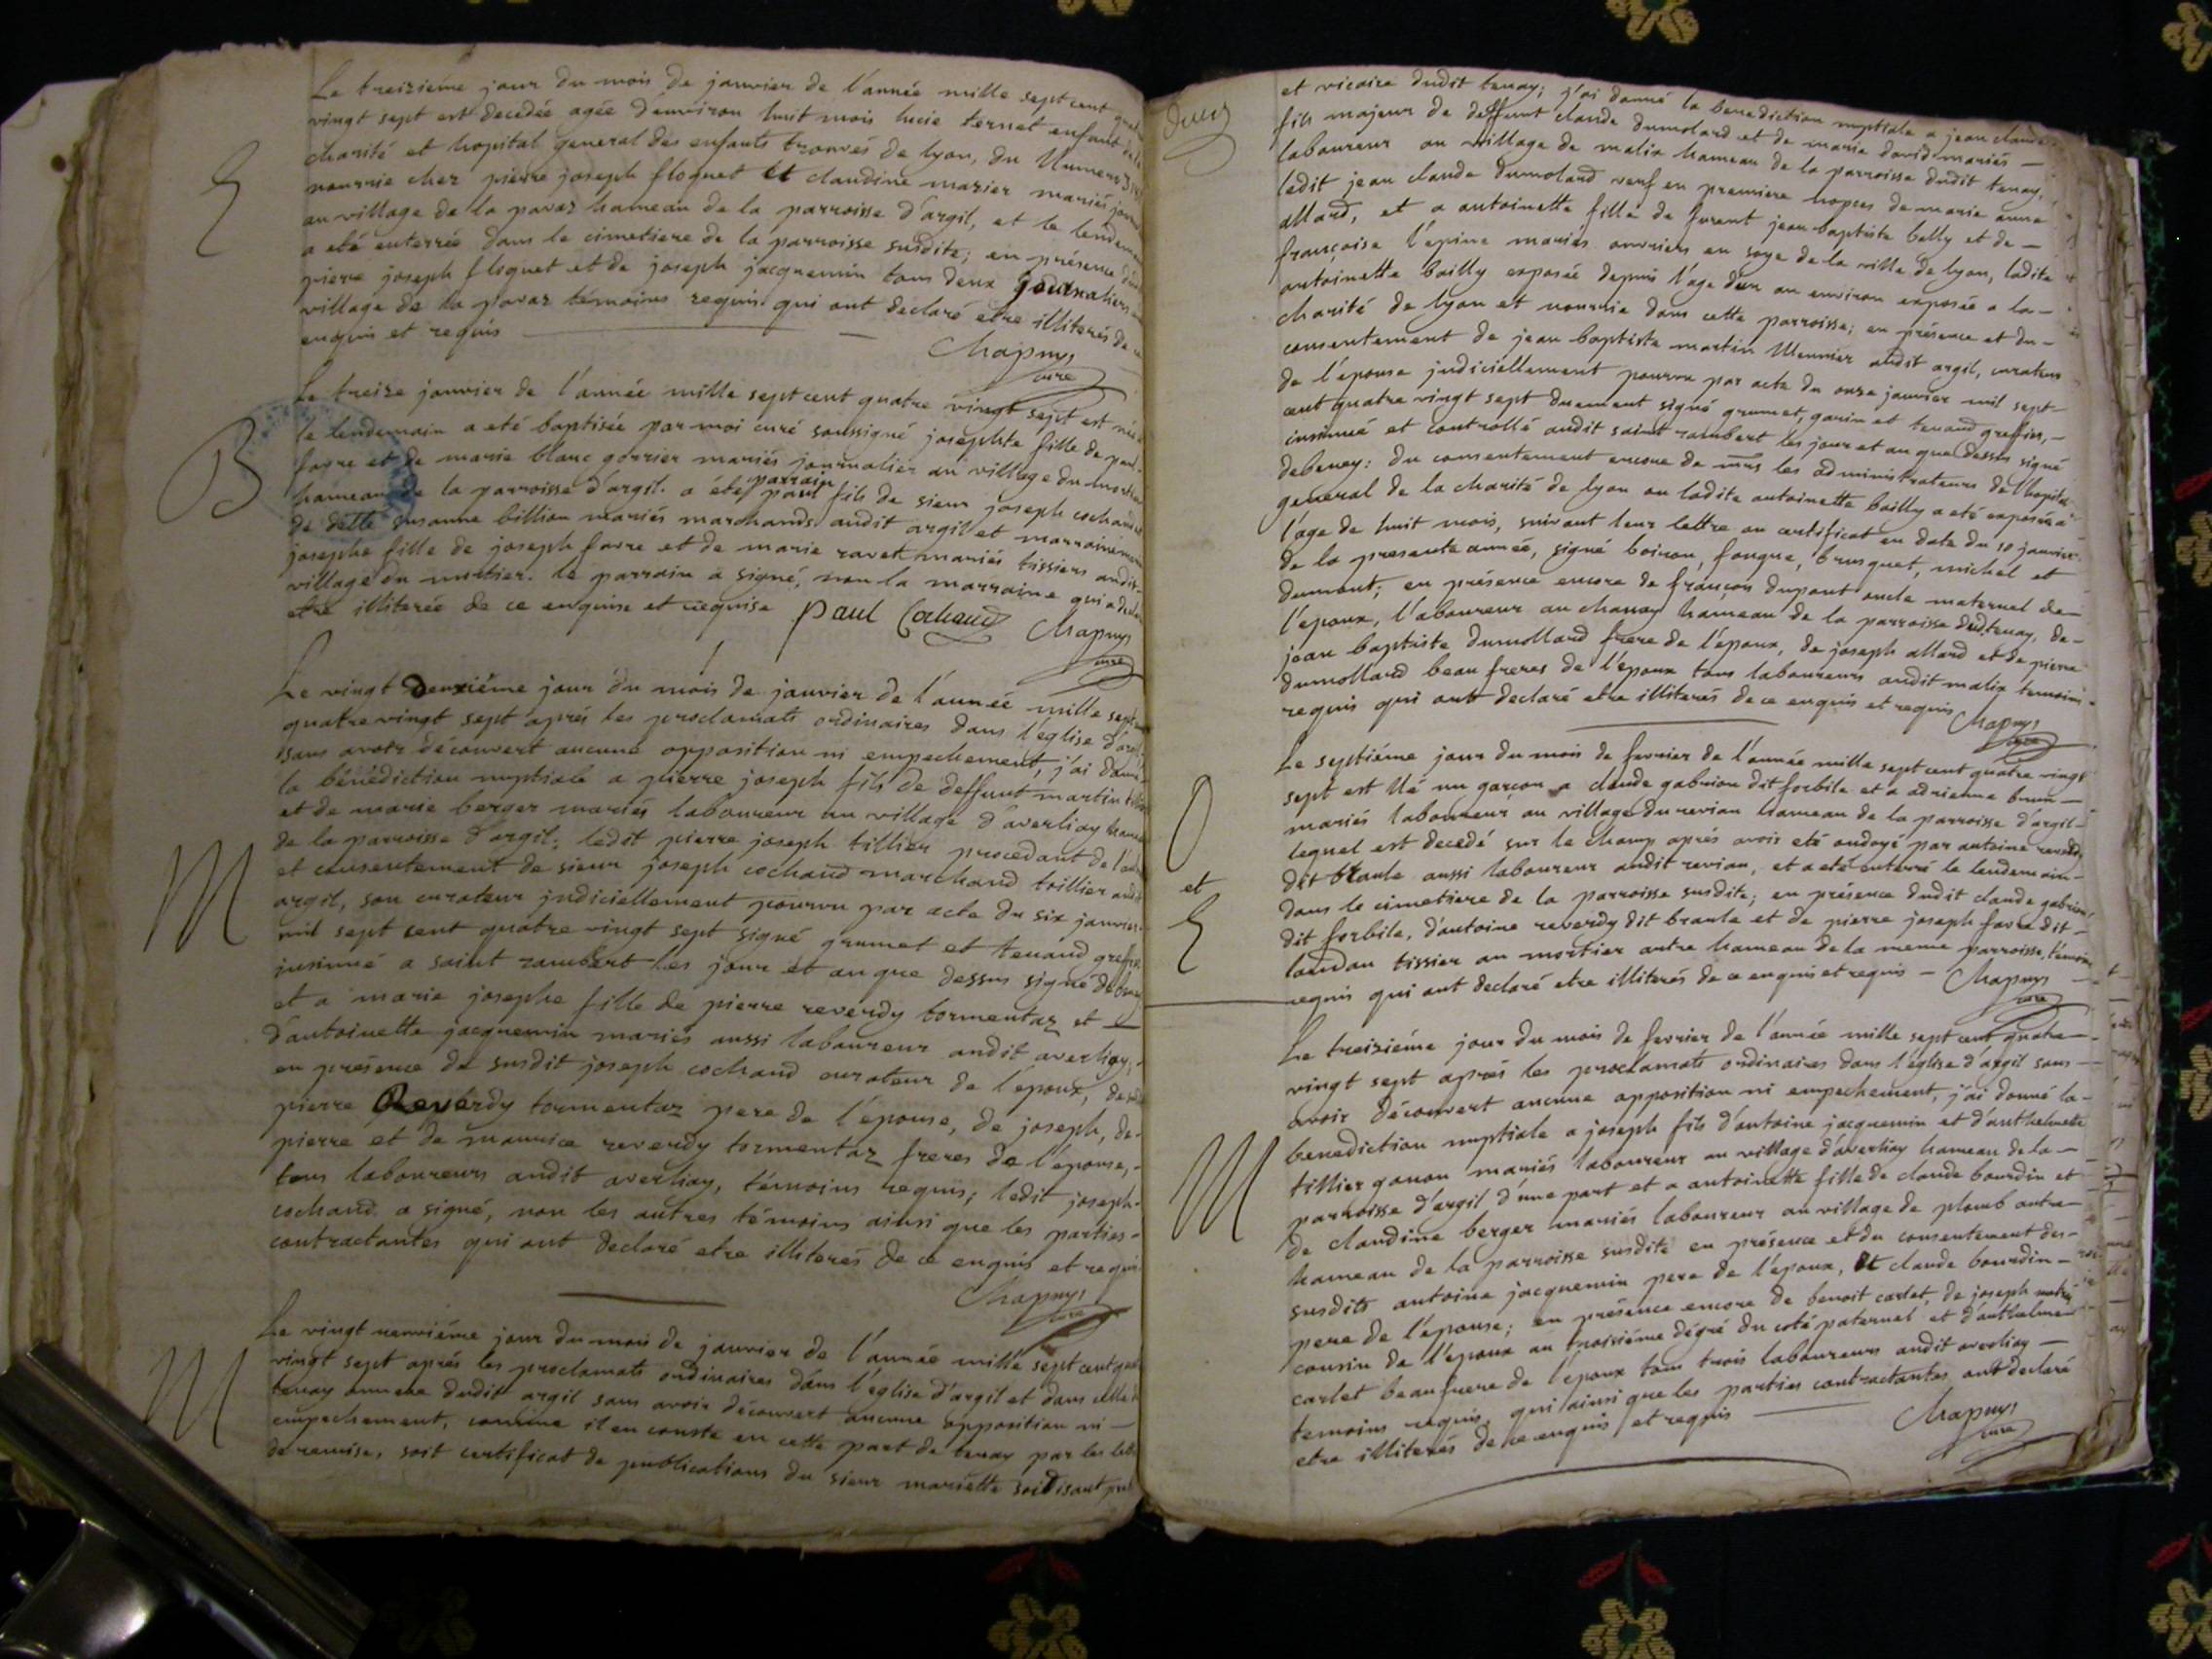 Le treizième jour du mois de janvier de l'année mille sept cent
vingt sept est decedée agée denviron huit mois lucie ternet enfant de la
charité et hopital general des enfants trouvés de lyon, du Numero
nourrie chez pierre joseph floquet et claudine marier mariés
au village de la pavaz hameau de la parroisse d'argil, et le
E
a eté enterrée dans le cimetiere de la parroisse susdite; en présence
pierre joseph floquet et de joseph jacquemin tous deux journaliers
village de la pavaz témoins requis qui ont declaré etre illiterés de
enquis et requis
Chapuys
curé
Le treize janvier de l'année mille sept cent quatre vingt sept est née
le lendemain a eté baptisée par moi curé soussigné josephte fille de
B
favre et de marie blanc gorrier mariés journalier au village du
hameau de la parroisse d'argil. a été parrain paul fils de sieur joseph cochaud
de delle susanne billion mariés marchands audit argil et marraine
josephe fille de joseph favre et de marie ravet mariés tissiers audit
village du mortier. le parrain a signé, non la marraine qui a
etre illiterée de ce enquise et requise Paul Cochaud Chapuys
curé
Le vingt deuxième jour du mois de janvier de l'année mille sept
quatre vingt sept aprés les proclamats ordinaires dans l'église
sans avoir découvert aucune opposition ni empechement, j'ai
la bénédiction nuptiale a pierre joseph fils de deffunt martin
et de marie berger mariés laboureur au village d'averliay
de la parroisse d'argil; ledit pierre joseph tillier procedant de
M
et consentement de sieur joseph cochaud marchand toillier
argil, son curateur judiciellement pourvu par acte du six janvier
mil sept cent quatre vingt sept signé grumet et tenand
insinué a saint rambert les jour et an que dessus signé
et a marie josephe fille de pierre reverdy tormentaz et
d'antoinette jacquemin mariés aussi laboureur audit averliay,
en présence du susdit joseph cochaud curateur de l'époux, de
pierre Reverdy tormentaz pere de l'épouse, de joseph, de
pierre et de maurice reverdy tormentaz freres de l'épouse,
tous laboureurs audit averliay, témoins requis; ledit joseph
cochaud a signé, non les autres témoins ainsi que les parties
contractantes qui ont declaré etre illiterés de ce enquis et requis
Chapuys
curé
Le vingt neuvième jour du mois de janvier de l'année mille sept cent
M
vingt sept aprés les proclamats ordinaires dans l'église d'argil et dans celle
tenay annexe dudit argil sans avoir découvert aucune opposition ni
empechement, comme il en conste en cette part de tenay par les
de remise, soit certificat de publications du sieur mariette soidisant
et vicaire dudit tenay; j'ai donné la benediction nuptiale a jean claude
fils majeur de deffunt claude dumolard et de marie david mariés
laboureur au village de malix hameau de la parroisse dudit tenay,
ledit jean claude dumolard veuf en premiere nopces de marie anne
allard, et a antoinette fille de furent jean baptiste bally et de
françoise l'epine mariés ouvriers en soye de la ville de lyon, ladite
antoinette bailly exposée depuis l'age d'un an environ exposée a la
charité de lyon et nourrie dans cette parroisse; en présence et du
consentement de jean baptiste martin Meunier audit argil, curateur
de l'épouse judiciellement pourvu par acte du onze janvier mil sept
cent quatre vingt sept duement signé grumet, garin et tenand greffier,
insinué et controllé audit saint rambert les jour et an que dessus signé
debeney: du consentement encore de mrs les administrateurs de l'hopital
general de la charité de lyon ou ladite antoinette bailly a eté exposée a
l'age de huit mois, suivant leur lettre ou certificat en date du 10 janvier
de la presente année, signé boiron, fougue, brusquet, michel et
dumont; en présence encore de françois dupont oncle maternel de
l'epoux, laboureur au chanay hameau de la parroisse dud. tenay, de
jean baptiste dumollard frere de l'époux, de joseph allard et de pierre
dumollard beau freres de l'epoux tous laboureurs audit malix temoins
requis qui ont declaré etre illiterés de ce enquis et requis Chapuys
curé
Le septième jour du mois de fevrier de l'année mille sept cent quatre vingt
sept est Né un garçon a claude gabrion dit forbile et a adrienne brun
O
mariés laboureur au village du revian hameau de la parroisse d'argil
lequel est decedé sur le champ aprés avoir eté ondoyé par antoine reverdy
et
dit braule aussi laboureur audit revian, et a eté enterré le lendemain
E
dans le cimetiere de la parroisse susdite; en présence dudit claude gabrion
dit forbile, d'antoine reverdy dit braule et de pierre joseph favre dit
laudan tissier au mortier autre hameau de la meme parroisse, témoins
requis qui ont declaré etre illiterés de ce enquis et requis Chapuys
curé
Le treizième jour du mois de fevrier de l'année mille sept cent quatre
vingt sept aprés les proclamats ordinaires dans l'église d'argil sans
avoir découvert aucune opposition ni empechement, j'ai donné la
benediction nuptiale a joseph fils d'antoine jacquemin et d'anthelmette
M
tillier ganon mariés laboureur au village d'averliay hameau de la
parroisse d'argil d'une part et a antoinette fille de claude bourdin et
de claudine berger mariés laboureur au village de plomb autre
hameau de la parroisse susdite en présence et du consentement des
susdits antoine jacquemin pere de l'époux, et claude bourdin
pere de l'épouse; en présence encore de benoit carlet, de joseph
cousin de l'epoux au troisième dégré du coté paternel et d'anthelme
carlet beau frere de l'époux tous trois laboureurs audit averliay
temoins requis, qui ainsi que les parties contractantes ont declaré
etre illiterés de ce enquis et requis Chapuys
curé